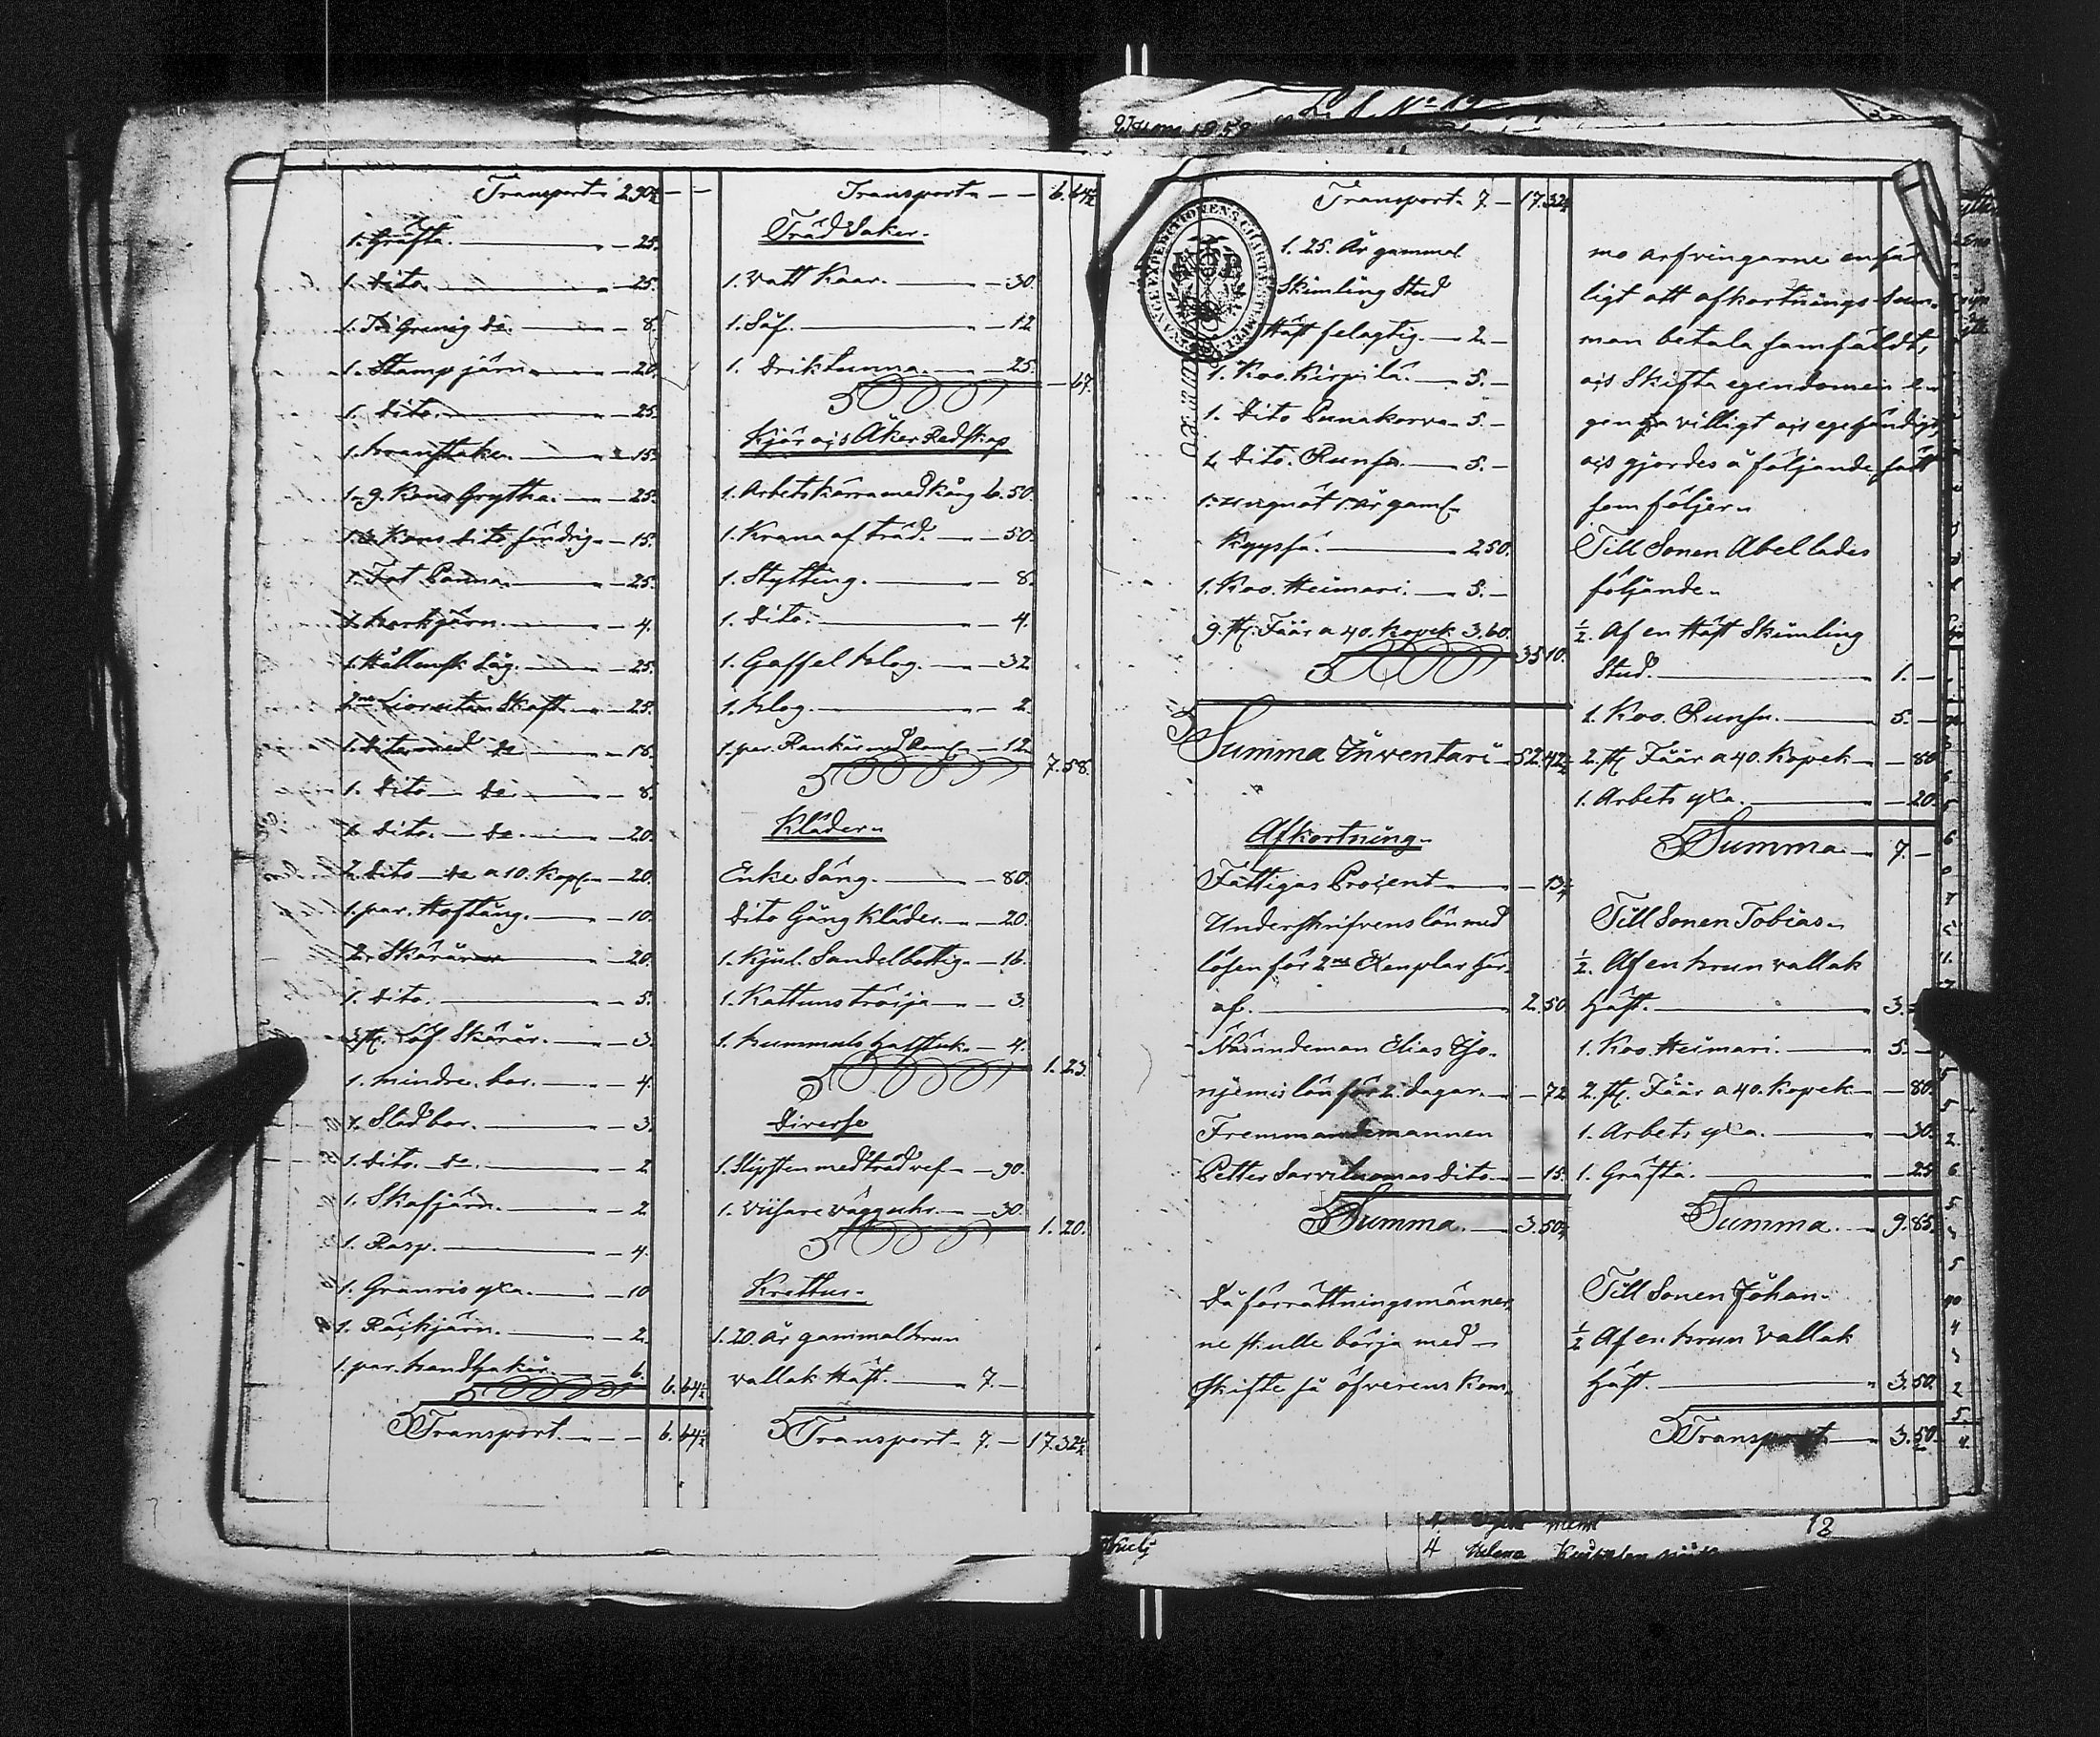 Transport 2.90½ — —
1. Gräfta. — 25.
1. Dito — 25.
1. Tre Grenig de. — 8.
1. Stamp järn — 20.
1. Dito. — 25.
1. — 15.
1. 9. Kans Grytha. — 25.
1. Kans dito söndrig. — 15.
1. Fat Panna. — 25.
— 4.
1. Hållensk Såg. — 25.
2ne Lior utan Skaft — 25.
1. Dito med de — 15.
1. Dito de — 8.
1. Dito. de. — 20.
2. Dito de a 10. Kop. — 20.
1. par. Hoftång. — 10.
2. Skäror — 20.
1. Dito. — 5.
3. st. Löf Skäror. — 3.
1. mindre. bor. — 4.
1. Stad bor. — 3.
1. Dito. de. — 2.
1. Skafjärn. — 2.
1. Rasp. — 4.
1. Granris yxa. — 10
1. Räckjärn. — 2.
1. par. — 6.
6. 64½
Transport. — 6. 64½
Transport. — 6. 64½
Träd Saker.
1. Vatt Kaar. — 30.
1. Såf. — 12
1. Driktunna. — 25.
— 67.
Kjör och Åker Redskap
1. Arbets Kärra med Kårg 6.50.
1. Krana af träd. — 50.
1. Stytting. — 8.
1. Dito. — 4.
1. Gaffel Klog. — 32
1. Klog. — 2.
1. par. — 12
7. 58.
Kläder.
Enke Säng. — 80.
Dito Gång Kläder. — 20.
1. Kjul. — 16.
1. Kattuns tröija — 3.
1. — 4.
1. 23.
Diverse
1. Slipsten med träd vef. — 90.
1. Viisare vägguhr. — 30.
1. 20.
Krettur.
1. 20. År gammal brun
vallak Häst. — 7. —
Transport. 7. — 17.32½
Transport. 7 — 17.32½
1. 25. År gammal
Skimling Stud
Häst felagtig. — 2. —
1. Koo. Kirpilä. — 5. —
1. Dito Punakorva — 5. —
1. Dito. Runsu. — 5. —
1. ungnöt 1. År gaml.
Kyyssä. — 2.50.
1. Koo. Heimari. — 5. —
9. st. Fäär a 40. Kopek 3.60.
35 10.
Summa Inventari 52.42½
Afkortning.
Fattigas Procent — 13¼
Underskrifvens lön med
lösen för 2ne Exemplar här
af. — 2.50
Nämndeman Elias
lön för 2. dagar. — 72
Fremmandemannen
Petter Sarviluomas Dito — 15.
Summa. — 3.50¼
Då förrättningsmänner
ne skulle börja med
skifte så öfverens kom
mo arfvingarne
ligt att afkortnings Sum
man betala samfäldt,
och Skifta egendomen
villigt och egehändigt,
och gjordes å följande sätt
som följer.
Till Sonen Abel lades
följande.
½. Af en Häst Skimling
Stud. — 1. —
1. Koo. Runsu. — 5. —
2. st. Fäär a 40. Kopek — 80
1. Arbets yxa. — 20.
Summa — 7. —
Till Sonen Tobias.
½. Af en brun vallak
Häst. — 3.
1. Koo. Heimari. — 5. —
2. st. Fäär a 40. Kopek — 80.
1. Arbets yxa. — 30.
1. Gräfta. — 25
Summa. — 9.85.
Till Sonen Johan.
½ Af en brun Vallak
Häst. — 3.50.
Transport — 3.50.
12